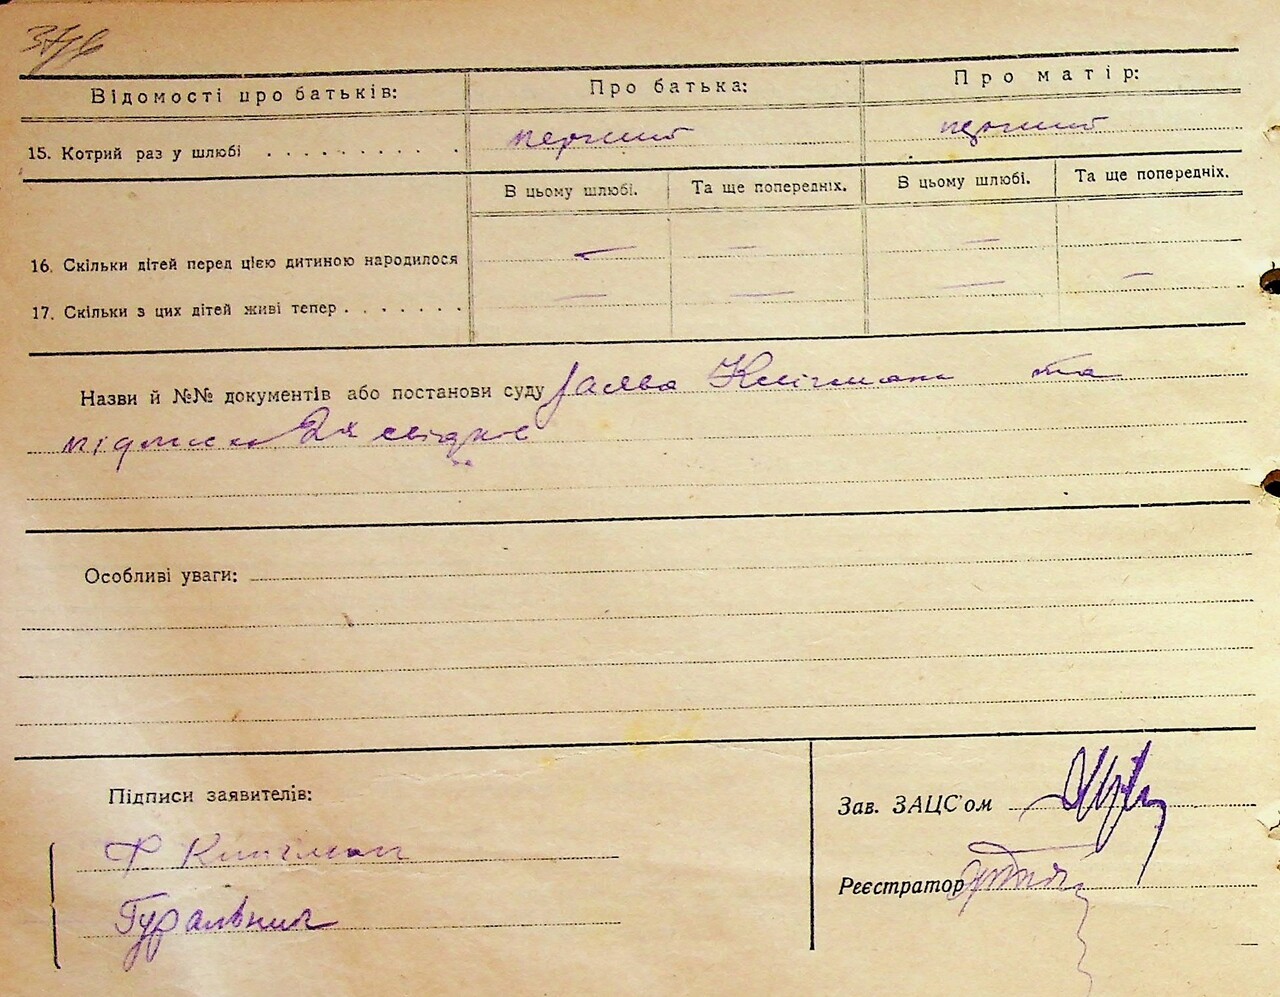 Відомості про батьків: Про батька: Про матір:
15. Котрий раз у шлюбі . . . . . . . . . . . перший перший
В цьому шлюбі. Та ще попередніх. В цьому шлюбі. Та ще попередніх.
16. Скільки дітей перед цією дитиною народилося — — —
17. Скільки з цих дітей живі тепер . . . . . . . — — — —
Назви й №№ документів або постанови суду Заява Клігман та
підписка 2х свідків
Особливі уваги:
Підписи заявителів:
Зав. ЗАЦС'ом
Ф Клигман
Реєстратор
Гуральник